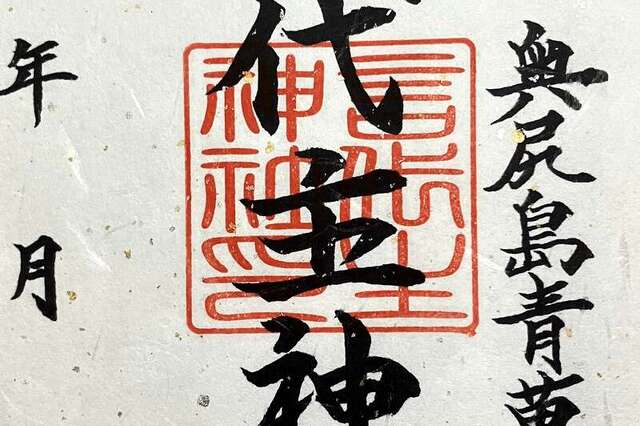 奥尻島青
代主神
言代主
神社印
年 月